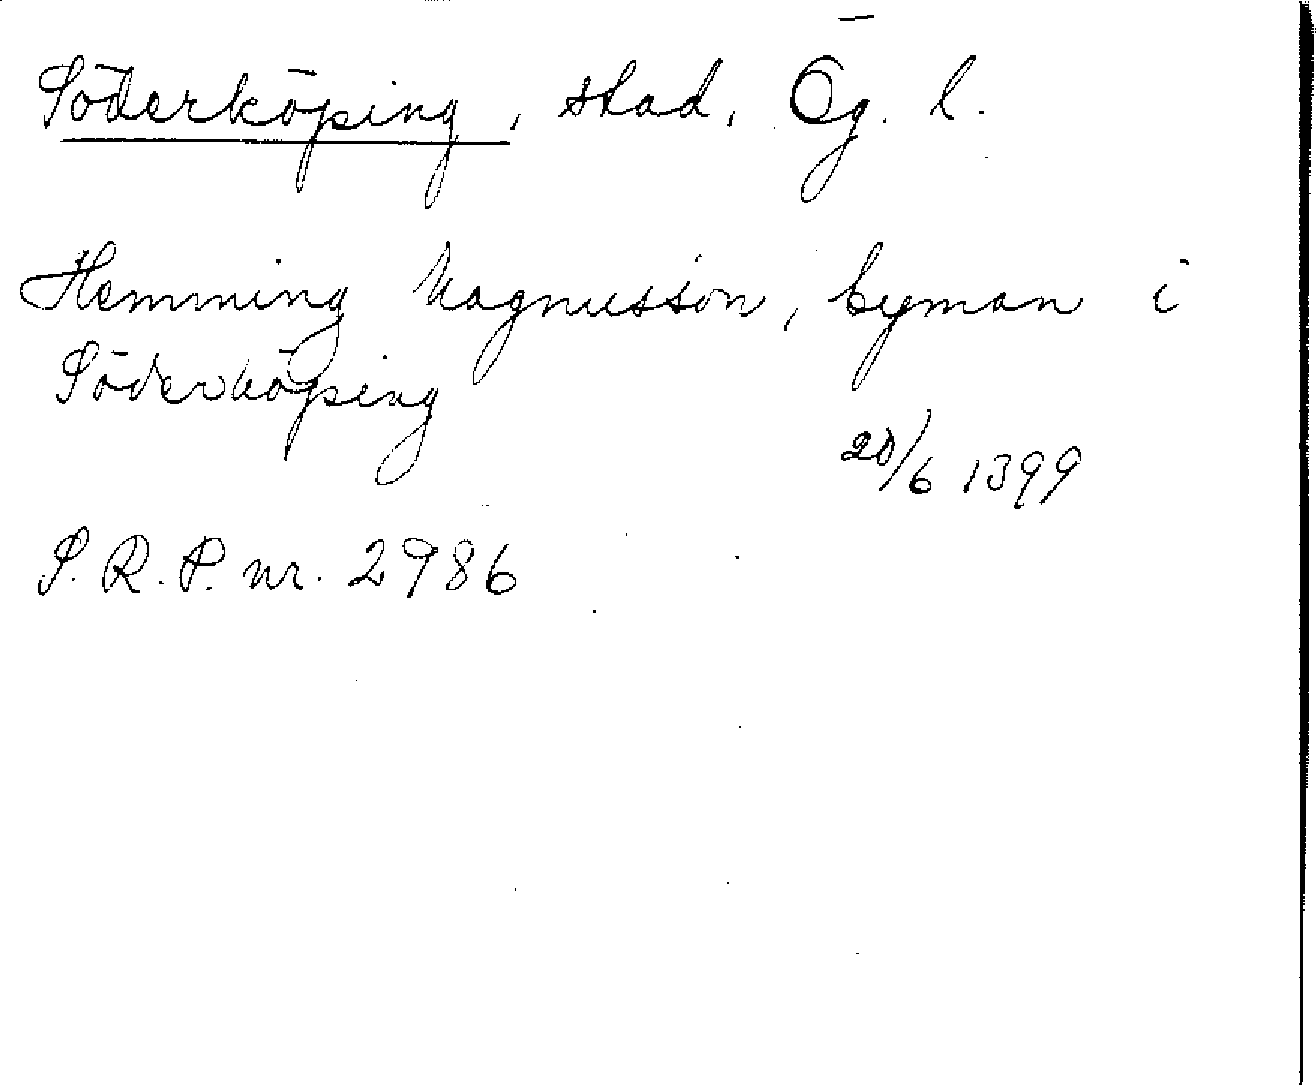 Söderköping, stad, Ög. l.
Hemming Magnusson, byman i
Söderköping
20/6 1399
S. R. P. nr. 2986